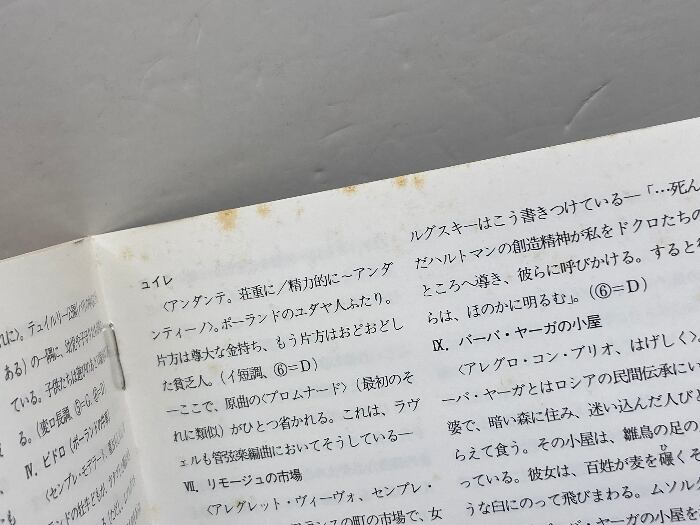 れに〉。テュイルリー公園
ある）の一隅に、
ている。子供たちは
る。（変ロ長調、
Ⅳ．ビドロ（ポーランド
〈センプレ・モデラート、
ュイレ
〈アンダンテ。荘重に／精力的に〜アンダ
ンティーノ〉。ポーランドのユダヤ人ふたり。
片方は尊大な金持ち、もう片方はおどおどし
た貧乏人。（イ短調、⑥＝D）
―ここで、原曲の〈プロムナード〉（最初のそ
れに類似）がひとつ省かれる。これは、ラヴ
ェルも管弦楽編曲においてそうしている―
Ⅶ．リモージュの市場
〈アレグレット・ヴィーヴォ、センプレ・
フランスの町の市場で、女
ルグスキーはこう書きつけている―「…死ん
だハルトマンの創造精神が私をドクロたちの
ところへ導き、彼らに呼びかける。すると
らは、ほのかに明るむ」。（⑥＝D）
Ⅸ．バーバ・ヤーガの小屋
〈アレグロ・コン・ブリオ、はげしく〉。
ーバ・ヤーガとはロシアの民間伝承にい
婆で、暗い森に住み、迷い込んだ人びと
らえて食う。その小屋は、雛鳥の足の
っている。彼女は、百姓が麦を碾くそ
うな臼にのって飛びまわる。ムソルグ
バ・ヤーガの小屋